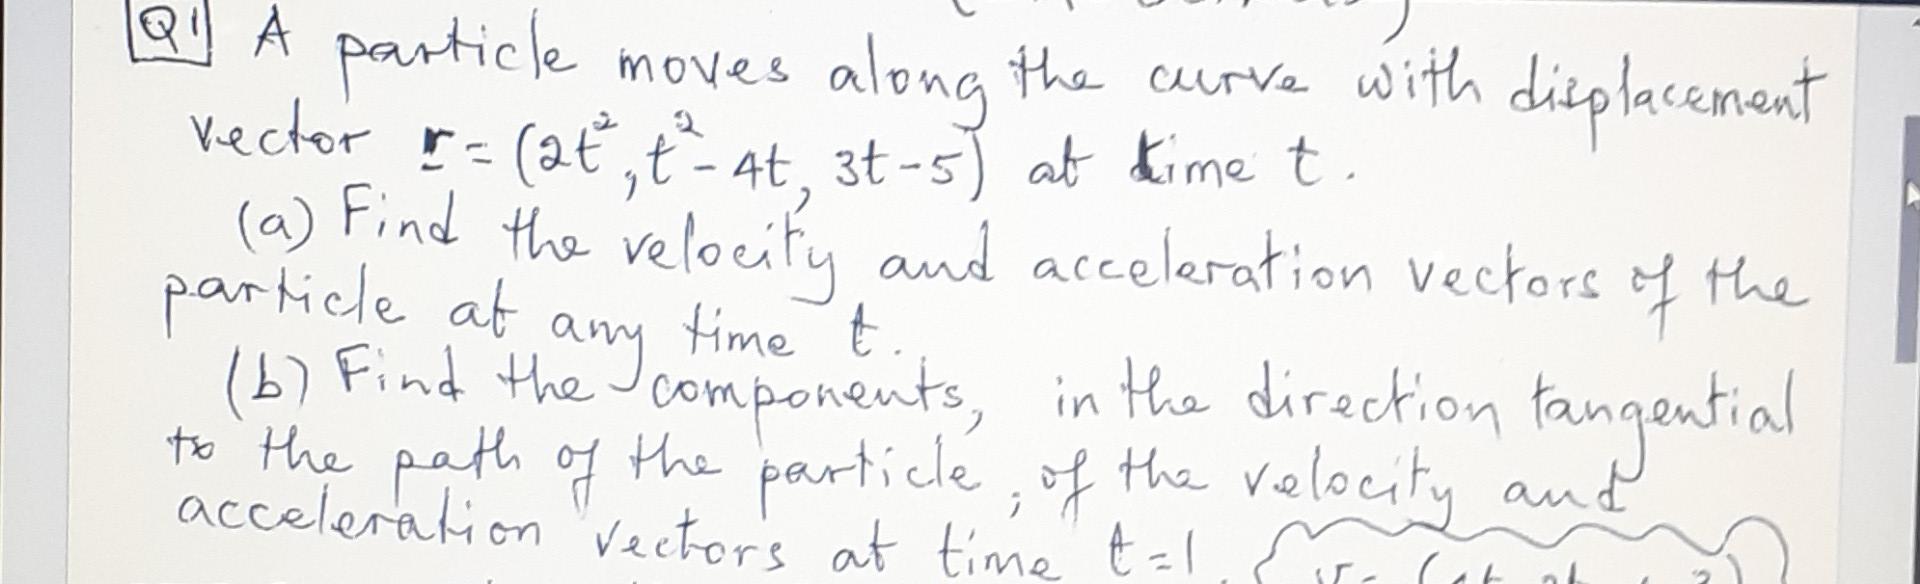 Q1 A particle moves along the curve with displacement
vector r = (2t², t² - 4t, 3t - 5) at time t.
(a) Find the velocity and acceleration vectors of the
particle at any time t.
(b) Find the components, in the direction tangential
to the path of the particle, of the velocity and
acceleration vectors at time t = 1.